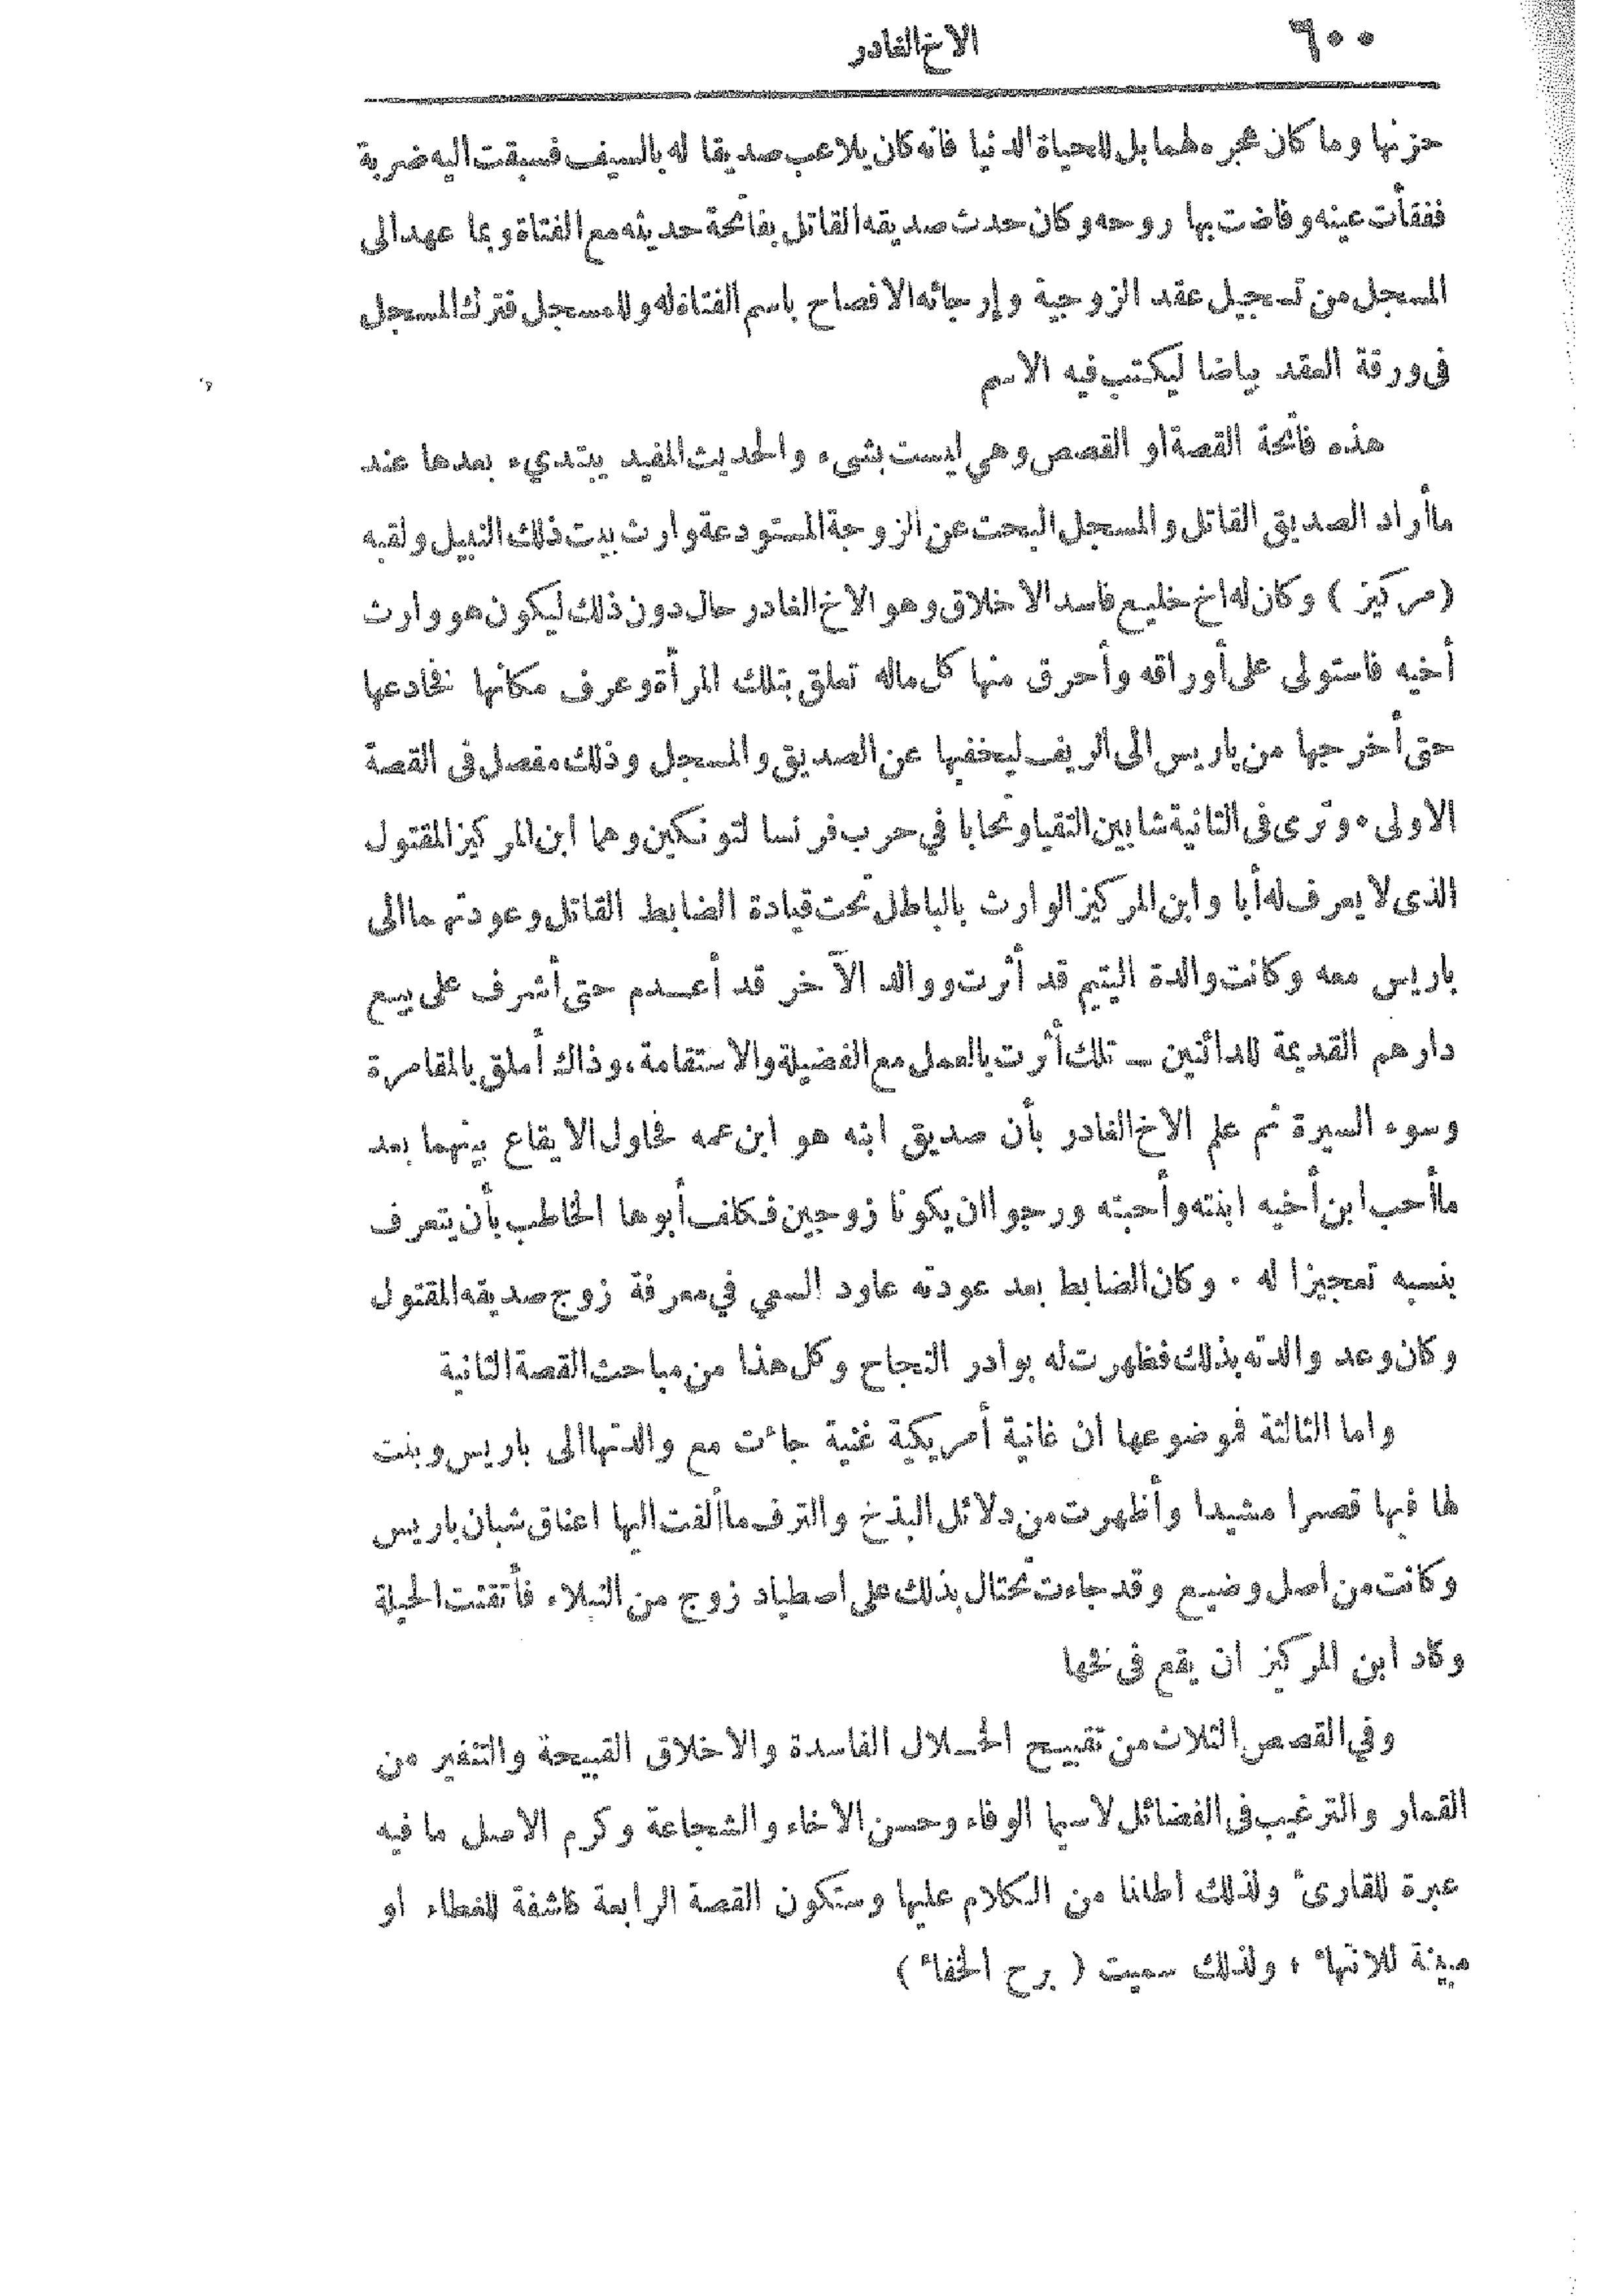 ٦٠٠
الاخ الغادر
حزنها وما كان هجره لهما بل للحياة الدنيا فانه كان يلاعب صديقا له بالسيف فسبقت اليه ضربة
ففقأت عينه وفاضت بها روحه وكان حدث صديقه القاتل بفاتحة حديثه مع الفتاة وبما عهد الى
المسجل من تسجيل عقد الزوجية وإرجائه الافصاح باسم الفتاة له وللمسجل فترك المسجل
فى ورقة العقد بياضا ليكتب فيه الاسم
هذه فاتحة القصة او القصص وهي ليست بشىء والحديث المفيد يبتدىء بعدها عند
ما أراد الصديق القاتل والمسجل البحث عن الزوجة المستودعة وارث بيت ذلك النبيل ولقبه
(مركيز) وكان له اخ خليع فاسد الاخلاق وهو الاخ الغادر حال دون ذلك ليكون هو وارث
أخيه فاستولى على أوراقه وأحرق منها كل ماله تعلق بتلك المرأة وعرف مكانها فخادعها
حتى أخرجها من باريس الى الريف ليخفيها عن الصديق والمسجل وذلك مفصل فى القصة
الاولى . وترى فى الثانية شابين التقيا وتحابا في حرب فرنسا لتونكين وهما ابن المركيز المقتول
الذى لا يعرف له أبا وابن المركيز الوارث بالباطل تحت قيادة الضابط القاتل وعودتهما الى
باريس معه وكانت والدة اليتيم قد أثرت ووالد الآخر قد أعدم حتى أشرف على بيع
دارهم القديمة للدائنين ــ تلك أثرت بالعمل مع الفضيلة والاستقامة، وذاك أملق بالمقامرة
وسوء السيرة ثم علم الاخ الغادر بأن صديق ابنه هو ابن عمه فحاول الايقاع بينهما بعد
ما أحب ابن أخيه ابنته وأحبته ورجوا ان يكونا زوجين فكلف أبوها الخاطب بأن يتعرف
بنسبه تعجيزا له . وكان الضابط بعد عودته عاود السعي في معرفة زوج صديقه المقتول
وكان وعد والدته بذلك فظهرت له بوادر النجاح وكل هذا من مباحث القصة الثانية
واما الثالثة فموضوعها ان غانية أمريكية غنية جاءت مع والدتها الى باريس وبنت
لها فيها قصرا مشيدا وأظهرت من دلائل البذخ والترف ما ألفت اليها اعناق شبان باريس
وكانت من اصل وضيع وقد جاءت تحتال بذلك على اصطياد زوج من النبلاء فأتقنت الحيلة
وكاد ابن المركيز ان يقع فى فخها
وفي القصص الثلاث من تقبيح الخلال الفاسدة والاخلاق القبيحة والتنفير من
القمار والترغيب فى الفضائل لاسيما الوفاء وحسن الاخاء والشجاعة وكرم الاصل ما فيه
عبرة للقارئ ولذلك اطلنا من الكلام عليها وستكون القصة الرابعة كاشفة للغطاء او
مبينة للانتهاء ، ولذلك سميت ( برح الخفاء )